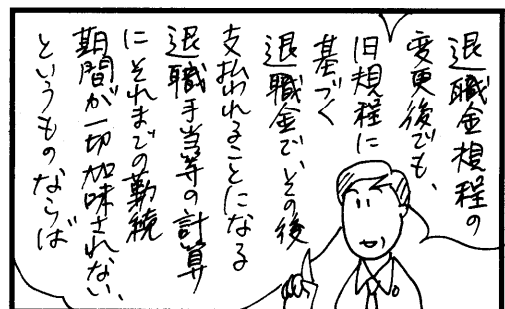 退職金規程の
変更後でも、
旧規程に
基づく
退職金で、その後
支払われることになる
退職手当等の計算
にそれまでの勤続
期間が一切加味されない、
というものならば